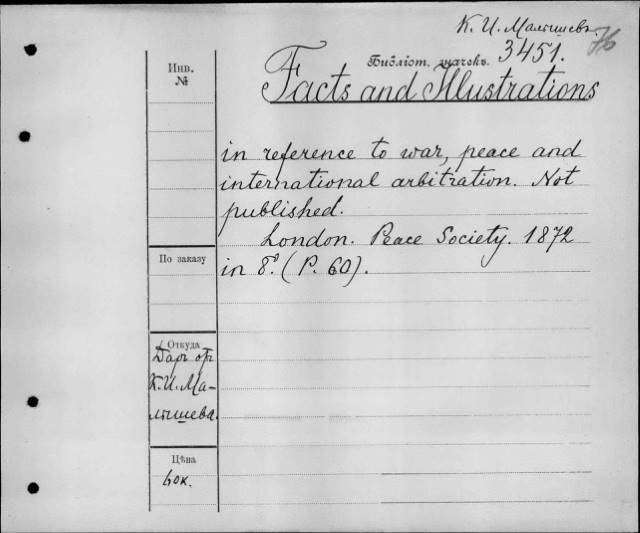 К. И. Малышевъ. 76
Библіот. значекъ. 3451.
Инв.
№
Facts and Illustrations
in reference to war, peace and
international arbitration. Not
published.
London. Peace Society. 1872
По заказу
in 8º. (P. 60).
Откуда
Даръ от
К. И. Ма-
лышева.
Цѣна
60к.